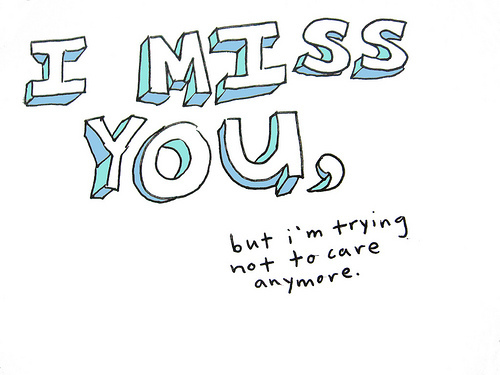 I MISS
YOU,
but i'm trying
not to care
anymore.